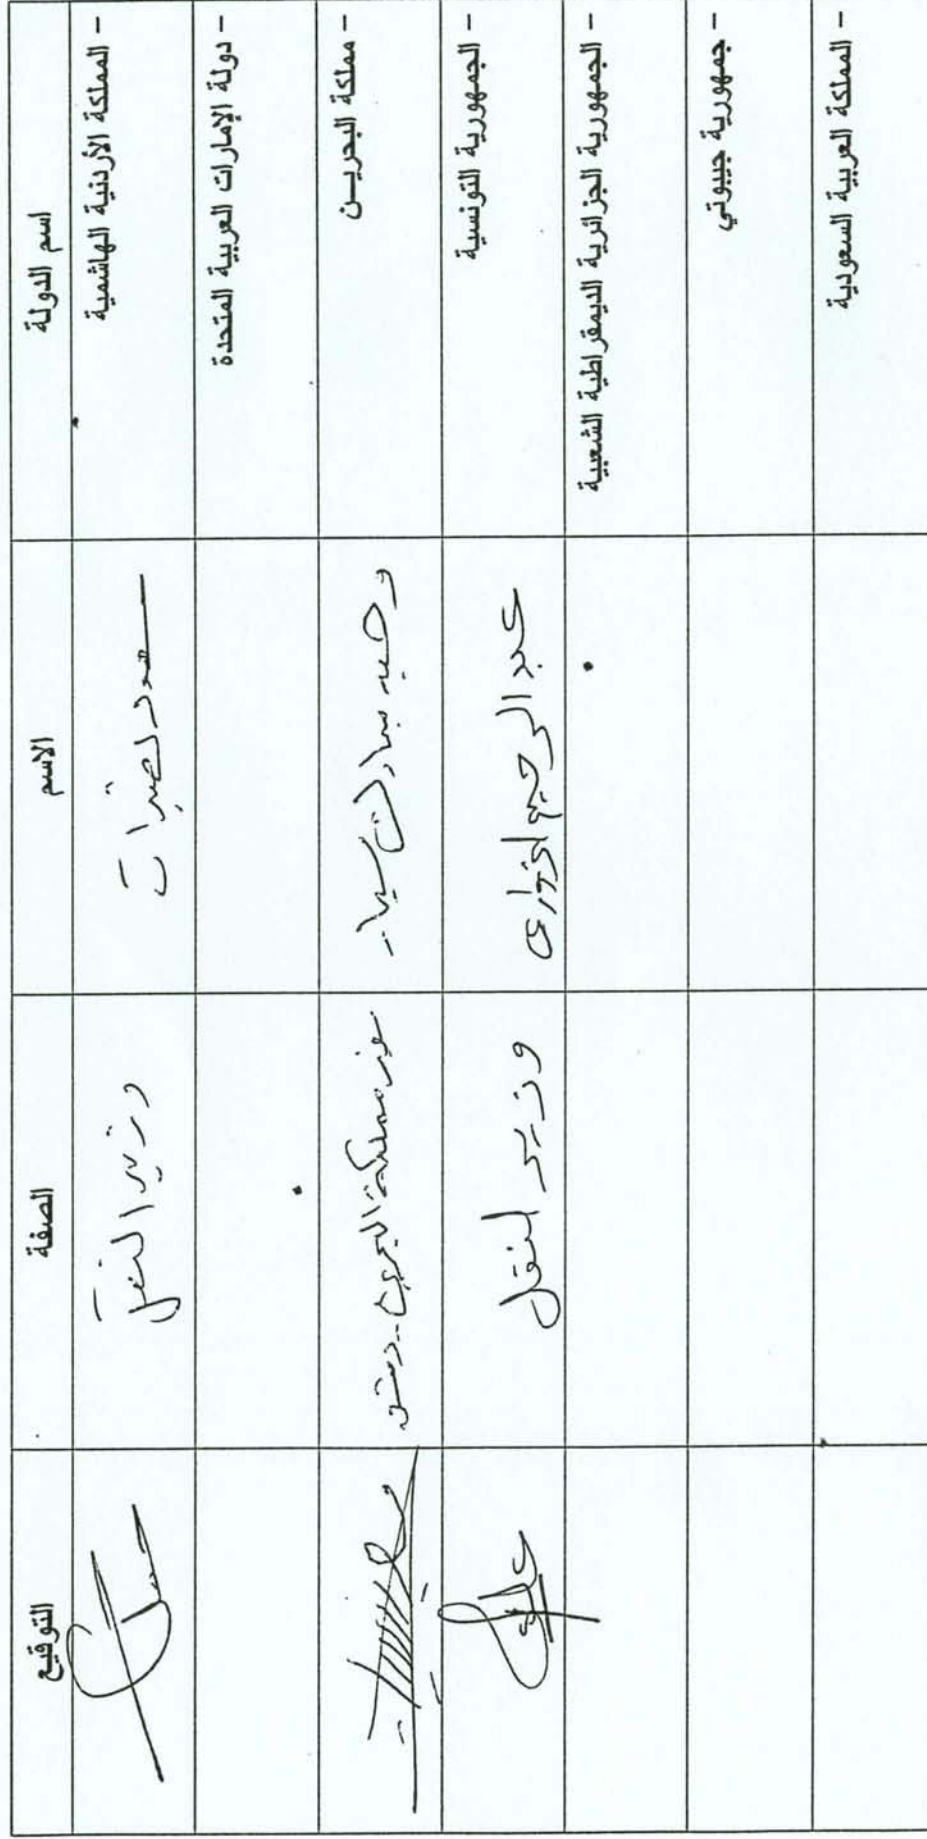 اسم الدولة الاسم الصفة التوقيع
- المملكة الأردنية الهاشمية وزير النقل
- دولة الإمارات العربية المتحدة
- مملكة البحريـن مملكة البحرين - دمشق
- الجمهورية التونسية عبد الرحيم الزواري وزير النقل
- الجمهورية الجزائرية الديمقراطية الشعبية
- جمهورية جيبوتي
- المملكة العربية السعودية